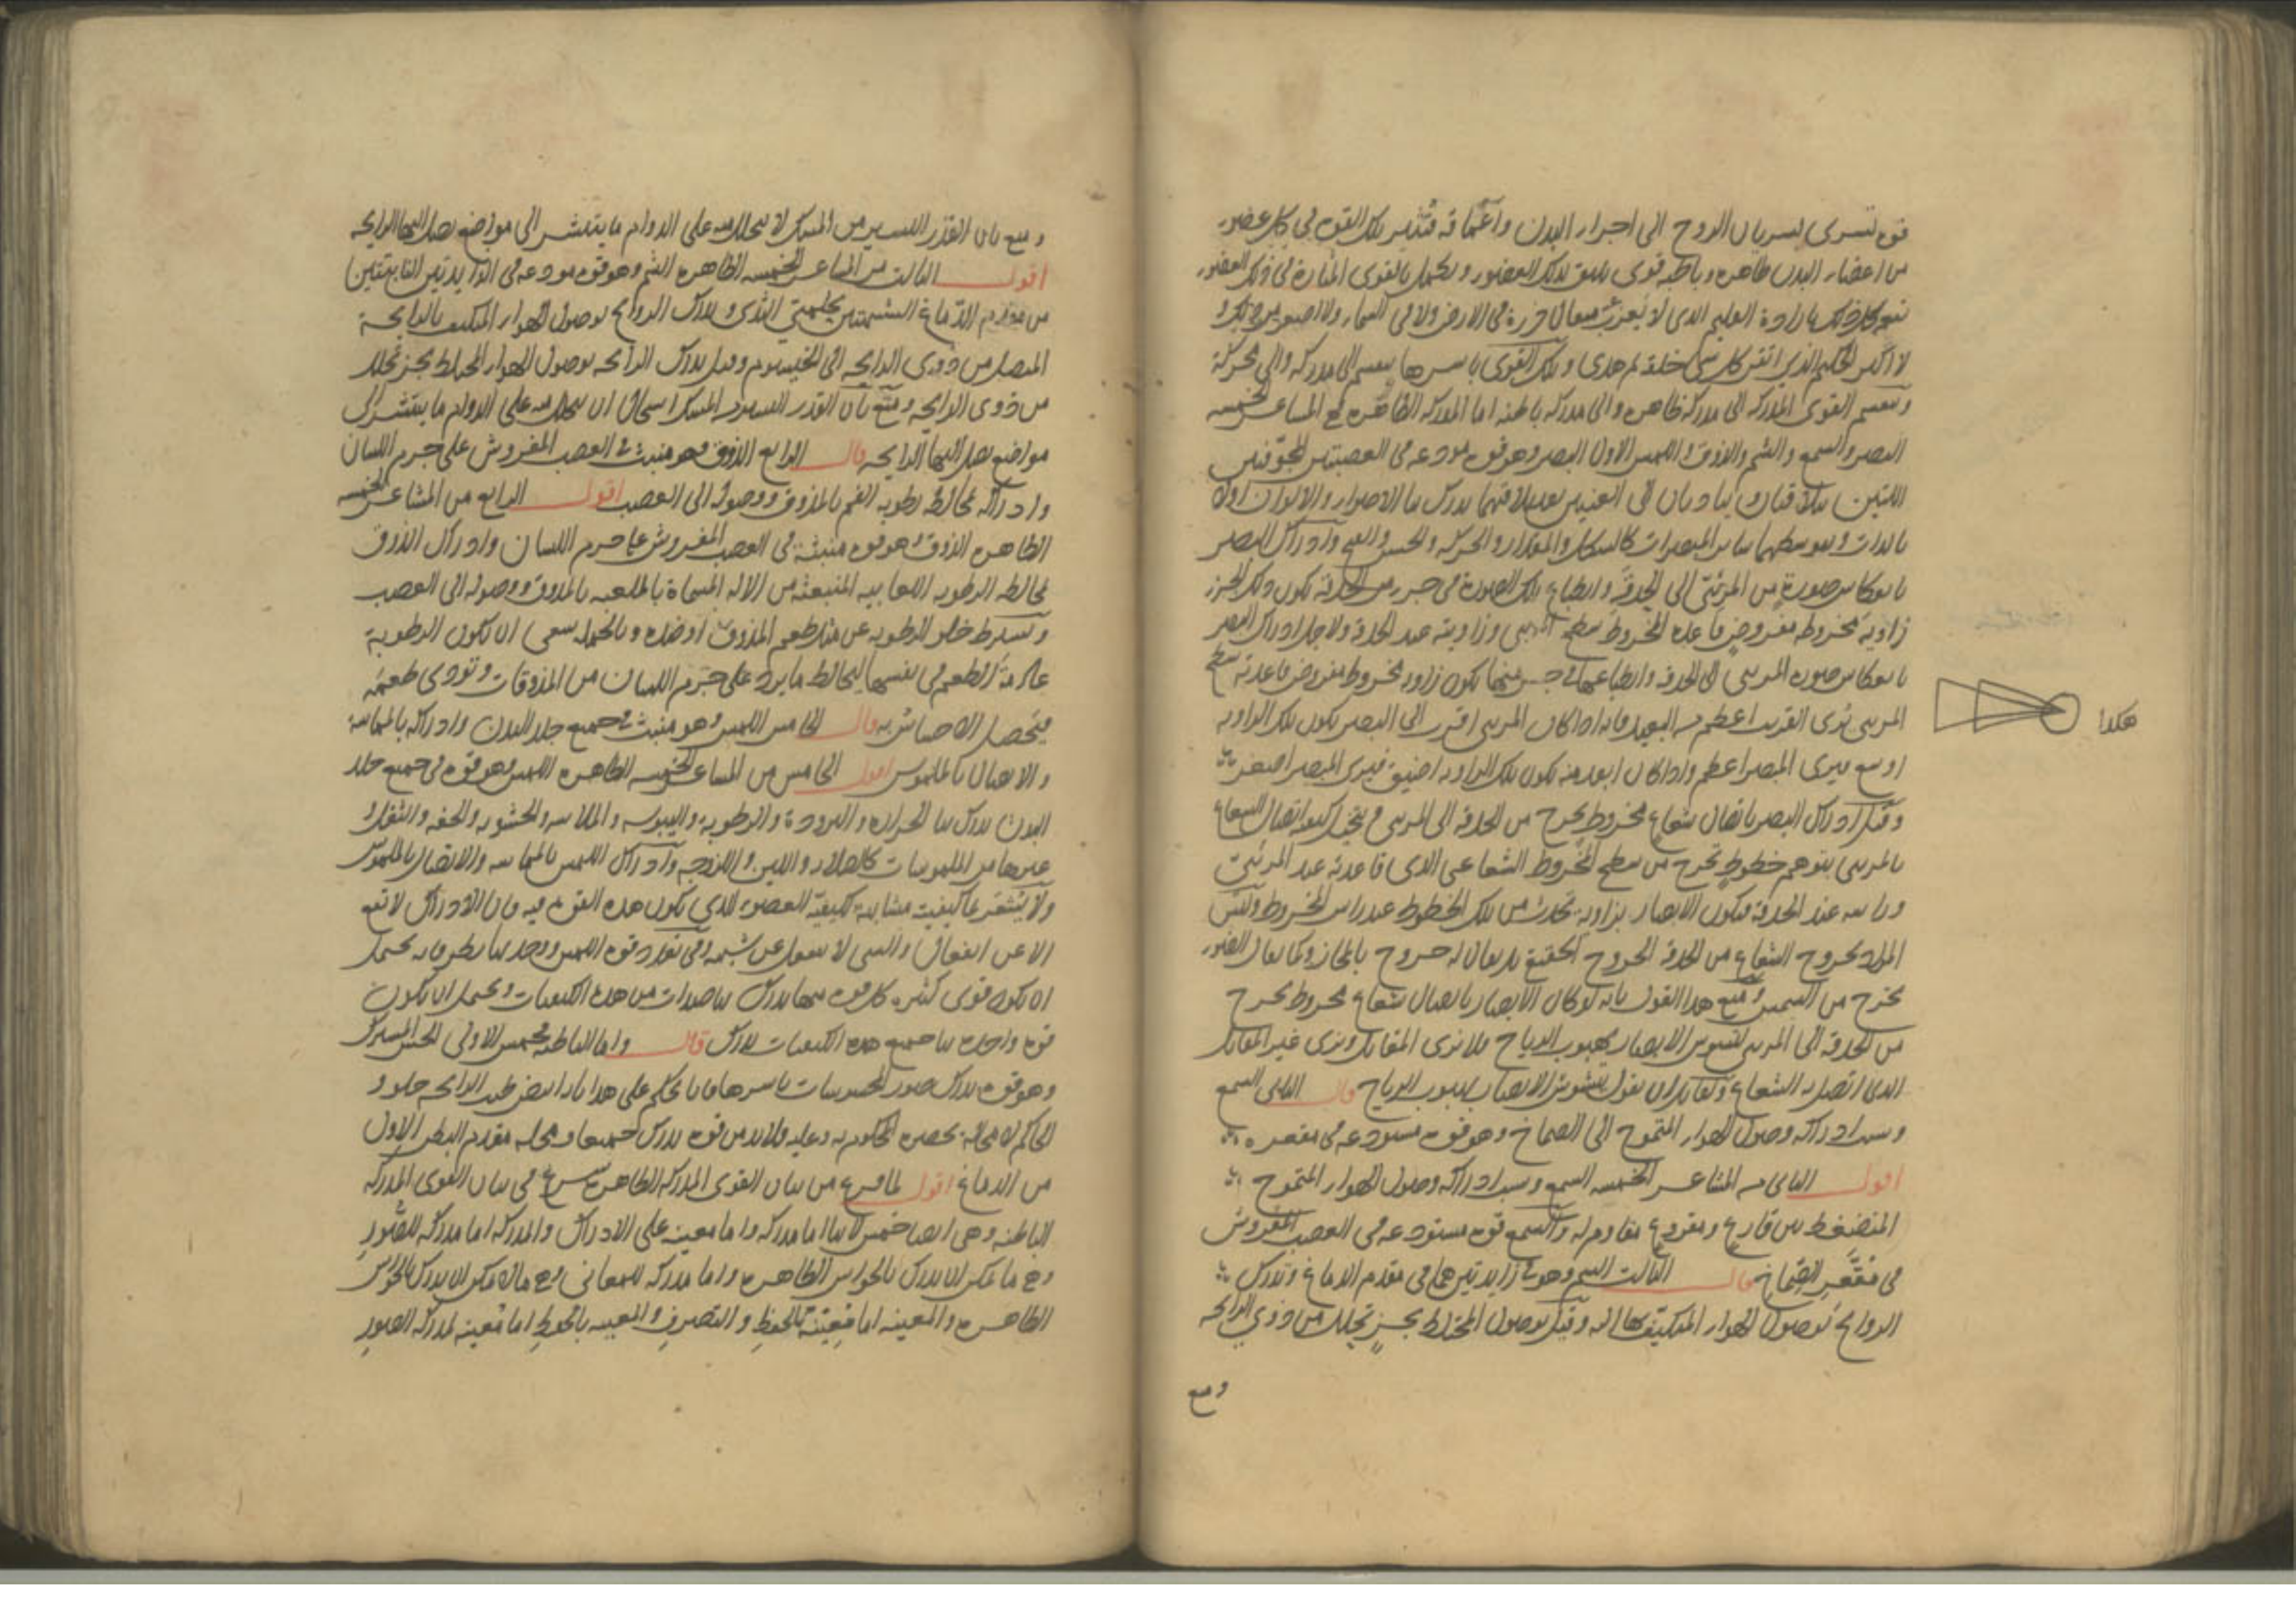 قوة تسري بسريان الروح الى اجزاء البدن واعماقه فتثير تلك القوة في كل عضو
من اعضاء البدن ظاهره وباطنه قوى تليق بذلك العضو ويكمل بالقوى المثارة في ذلك العضو
كل ذلك بارادة العليم الذي لا يعزب عنه مثقال ذرة في الارض ولا في السماء ولا اصغر من ذلك و
لا اكبر الحكيم الذي اتقن كل شي خلقه ثم هدى وتلك القوى باسرها ينقسم الى مدركة والى محركة
وينقسم القوى المدركة الى مدركة ظاهرة والى مدركة باطنة اما المدركة الظاهرة فهي المشاعر الخمسة
البصر والسمع والشم والذوق واللمس الاول البصر وهو قوة مودعة في العصبتين المجوفتين
اللتين تتلاقيان و يتاديان الى العينين بعد تلاقيهما يدرك بها الاضواء والالوان اولا
بالذات وبتوسطهما سائر المبصرات كالشكل والمقدار والحركة والحسن والقبح وادراك البصر
بانعكاس صورة من المرئي الى الحدقة وانطباع تلك الصورة في جزء من الحدقة يكون ذلك الجزء
زاوية مخروط مفروض قاعدة المخروط سطح المرئي وزاويته عند الحدقة ولاجل ادراك البصر
بانعكاس صورة المرئي الى الحدقة وانطباعها في جزء منها يكون زاوية مخروط مفروض قاعدته سطح
المرئي يرى القريب اعظم من البعيد فانه اذا كان المرئي اقرب الى البصر يكون تلك الزاوية
هكذا
اوسع فيرى المبصر اعظم واذا كان ابعد منه يكون تلك الزاوية اضيق فيرى المبصر اصغر
وقيل ادراك البصر باتصال شعاع مخروط يخرج من الحدقة الى المرئي في تخيل كيفية اتصال الشعاع
بالمرئي بتوهم خطوط تخرج من سطح المخروط الشعاعي الذي قاعدته عند المرئي
وراسه عند الحدقة فيكون الابصار بزاوية تحدث من تلك الخطوط عند راس المخروط وليس
المراد بخروج الشعاع من الحدقة الخروج الحقيقي بل يقال له خروج بالمجاز وكما يقال الضوء
يخرج من الشمس ومنع هذا القول بانه لو كان الابصار باتصال شعاع مخروط يخرج
من الحدقة الى المرئي لتشوش الابصار بهبوب الرياح فلا نرى المقابل ونرى غير المقابل
الذي اتصل به الشعاع ولقائل ان يقول بتشوش الابصار بهبوب الرياح قال الثاني السمع
وسبب ادراكه وصول الهواء المتموج الى الصماخ وهو قوة مستودعة في مقعره
اقول الثاني من المشاعر الخمسة السمع وسبب ادراكه وصول الهواء المتموج
المنضغط بين قارع ومقروع مقاوم له والسمع قوة مستودعة في العصب المفروش
في مقعر الصماخ قال الثالث الشم وهو في زايدتين هما في مقدم الدماغ وتدرك
الروايح بوصول الهواء المتكيف بها اليه وقيل بوصول المختلط بجزء تحلل من ذوي الرايحة
ومنع
ومنع بان القدر اليسير من المسك لا يتحلل منه على الدوام ما ينتشر الى مواضع يصل اليها الرايحة
اقول الثالث من المشاعر الخمسة الظاهرة الشم وهو قوة مودعة في الزايدتين النابتتين
من مقدم الدماغ الشبيهتين بحلمتي الثدي ويدرك الروايح بوصول الهواء المتكيف بالرايحة
المتصل من ذوي الرايحة الى الخيشوم وقيل يدرك الرايحة بوصول الهواء المختلط بجزء تحلل
من ذوي الرايحة ومنع بان القدر اليسير من المسك استحال ان يتحلل منه على الدوام ما ينتشر الى
مواضع يصل اليها الرايحة قال الرابع الذوق وهو منبث في العصب المفروش على جرم اللسان
وادراكه بمخالطة رطوبة الفم بالمذوق ووصوله الى العصب اقول الرابع من المشاعر الخمسة
الظاهرة الذوق وهو قوة منبثة في العصب المفروش على جرم اللسان وادراك الذوق
بمخالطة الرطوبة اللعابية المنبعثة من الالة المسماة بالملعبة بالمذوق ووصوله الى العصب
ويشترط خلو الرطوبة عن مثل طعم المذوق او ضده وبالجملة ينبغي ان تكون الرطوبة
عادمة الطعم في نفسها ليخالط ما يرد على جرم اللسان من المذوقات وتؤدي طعمه
فيحصل الاحساس به قال الخامس اللمس وهو منبث في جميع جلد البدن وادراكه بالمماسة
والاتصال بالملموس اقول الخامس من المشاعر الخمسة الظاهرة اللمس وهو قوة في جميع جلد
البدن يدرك بها الحرارة والبرودة والرطوبة واليبوسة والملاسة والخشونة والخفة والثقل و
غيرها من الملموسات كالصلابة واللين واللزوجة وادراك اللمس بالمماسة والاتصال بالملموس
ولا يشعر بما كيفيته مشابهة لكيفية العضو الذي يكون هذه القوة فيه فان الادراك لا يقع
الا عن انفعال والشي لا ينفعل عن شبهه وفي تعدد قوة اللمس ووحدتها نظر فانه يحتمل
ان يكون قوى كثيرة كل قوة منها يدرك بها ضدات من هذه الكيفيات ويحتمل ان يكون
قوة واحدة بها جميع هذه الكيفيات تدرك قال واما الباطنة فخمس الاولى الحس المشترك
وهو قوة يدرك صور المحسوسات باسرها فانا نحكم على هذا بانه ابيض طيب الرايحة حلو و
الحاكم لا محالة يحضره المحكوم به وعليه ولابد من قوة يدرك جميعا ومحله مقدم البطن الاول
من الدماغ اقول لما فرغ من بيان القوى المدركة الظاهرة شرع في بيان القوى المدركة
الباطنة وهي ايضا خمس لانها اما مدركة واما معينة على الادراك والمدركة اما مدركة للصور
وهي ما يمكن ان يدرك بالحواس الظاهرة واما مدركة للمعاني وهي ما لا يمكن ان يدرك بالحواس
الظاهرة والمعينة اما معينة بالحفظ والتصرف والمعينة بالحفظ اما معينة لمدركة الصور